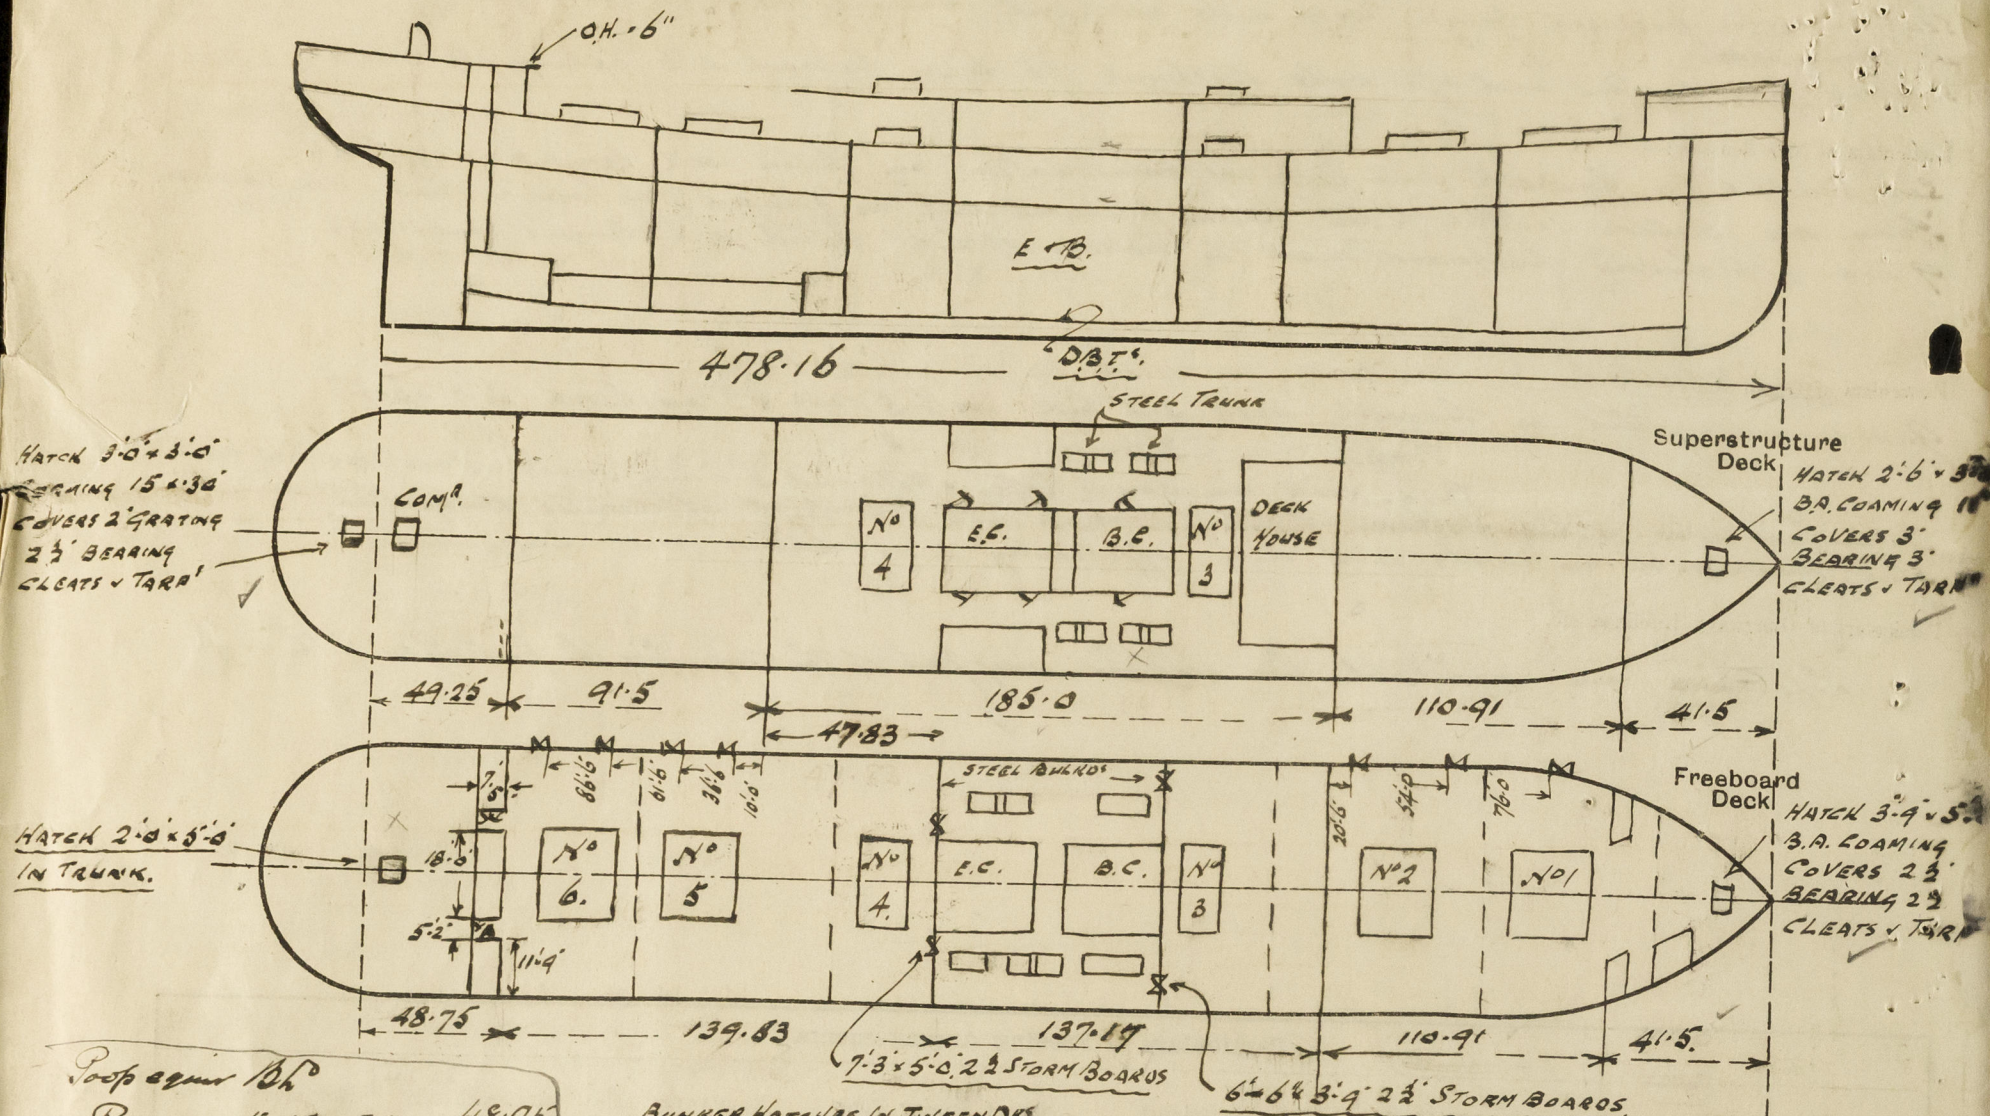 O.H. = 6"
E & B.
478.16
D.B.T.s.
STEEL TRUNK
Superstructure
Deck
HATCH 3'.0" x 3'.0"
COAMING 15" x .30"
COVERS 2" GRATING
2 ½" BEARING
CLEATS & TARPs
COMPn.
No
4
E.C.
B.C.
No
3
DECK
HOUSE
HATCH 2'.6" x
B.A. COAMING
COVERS 3"
BEARING 3"
CLEATS & TARP
49.25
91.5
185.0
110.91
41.5
47.83
Freeboard
Deck
STEEL BULKDs
7'.5
86'.6"
61'.6"
36'.6"
10'.0"
20'.6"
54'.0"
76'.0"
HATCH 2'.0" x 5'.0"
IN TRUNK.
18'.0"
5'.2"
11'.9"
No
6.
No
5
No
4.
E.C.
B.C.
No
3
No 2
No 1
HATCH 3'.9" x 5'.
B.A. COAMING
COVERS 2 ½"
BEARING 2 ½
CLEATS & TARP
48.75
139.83
137.17
110.91
41.5.
7'.3" x 5'.0", 2 ½ STORM BOARDS
3'.9" 2 ½" STORM BOARDS.
Poop equiv Bhd
48.75
BUNKER HATCHES IN TWEEN DKS